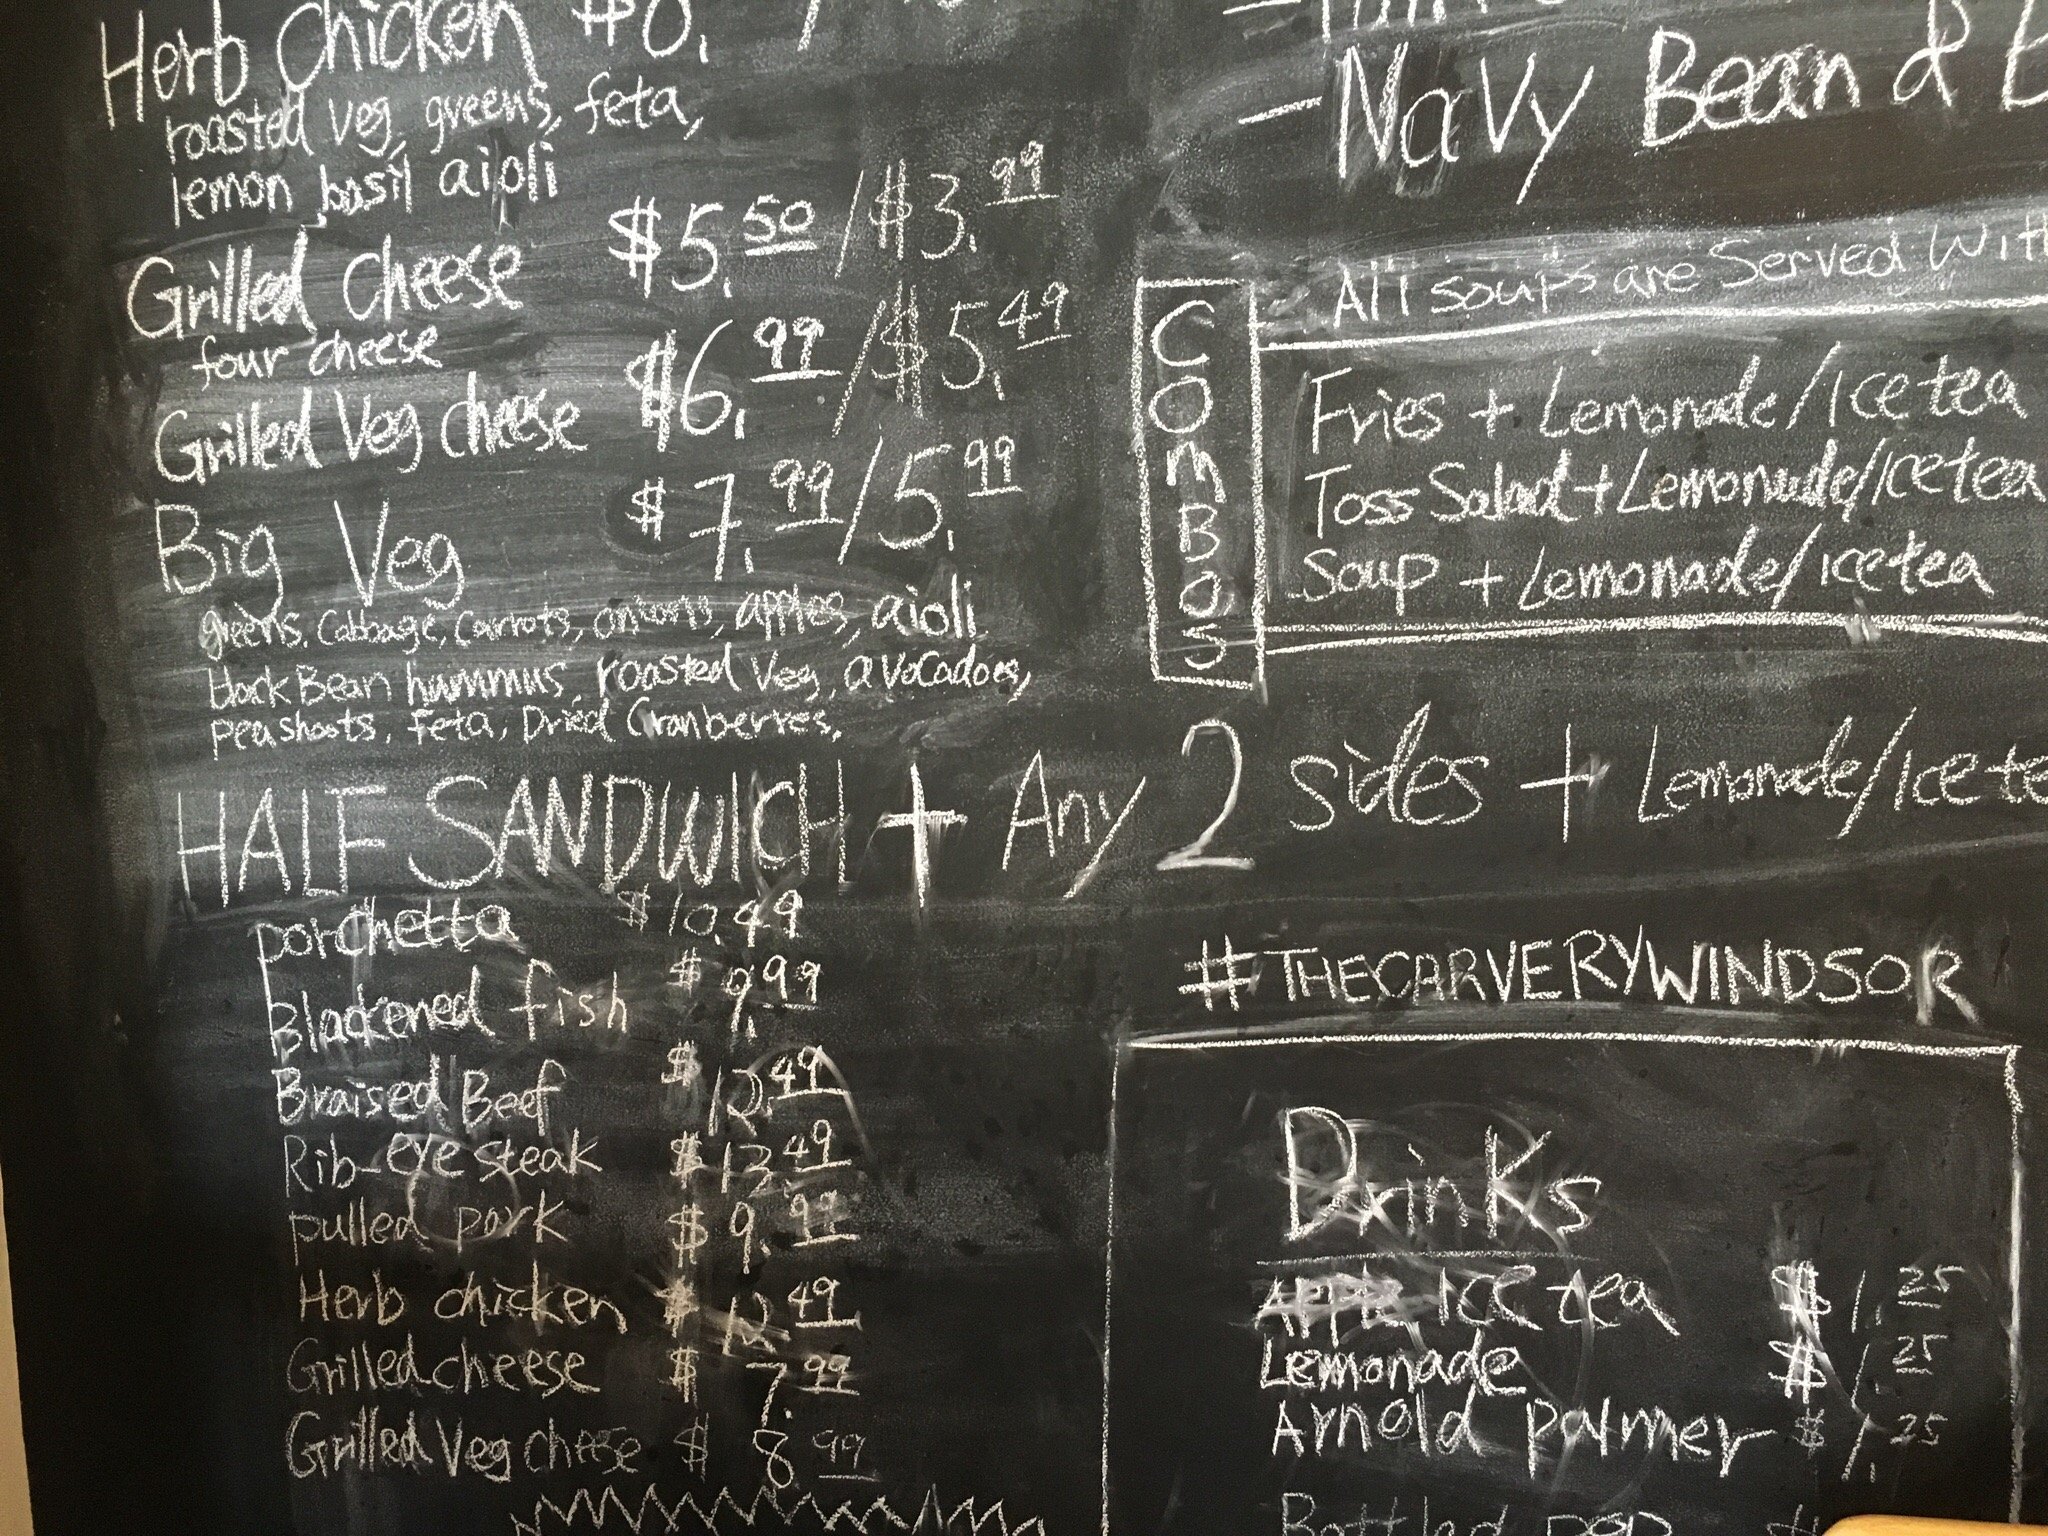 Herb Chicken
roasted veg, greens, feta,
lemon basil aioli
Grilled Cheese $5.50 / $3.99
four cheese
Grilled Veg cheese $6.99 / $5.49
Big Veg $7.99 / 5.99
greens, Cabbage, Carrots, onions, apples, aioli
black Bean hummus, roasted veg, avocadoes,
peashoots, feta, Dried Cranberres.
- Navy Bean &
All soups are Served With
COMBOS
Fries + Lemonade/Ice tea
Toss Salad + Lemonade/Icetea
Soup + Lemonade/Icetea
HALF SANDWICH + Any 2 sides + Lemonade/Ice te
porchetta $10.49
Blackened fish $9.99
Braised Beef $12.49
Rib-eye steak $13.49
pulled pork $9.99
Herb chicken $12.49
Grilled cheese $7.99
Grilled Veg cheese $8.99
#THECARVERYWINDSOR
Drinks
Ice tea $1.25
Lemonade $1.25
Arnold palmer $1.25
Bottled pop